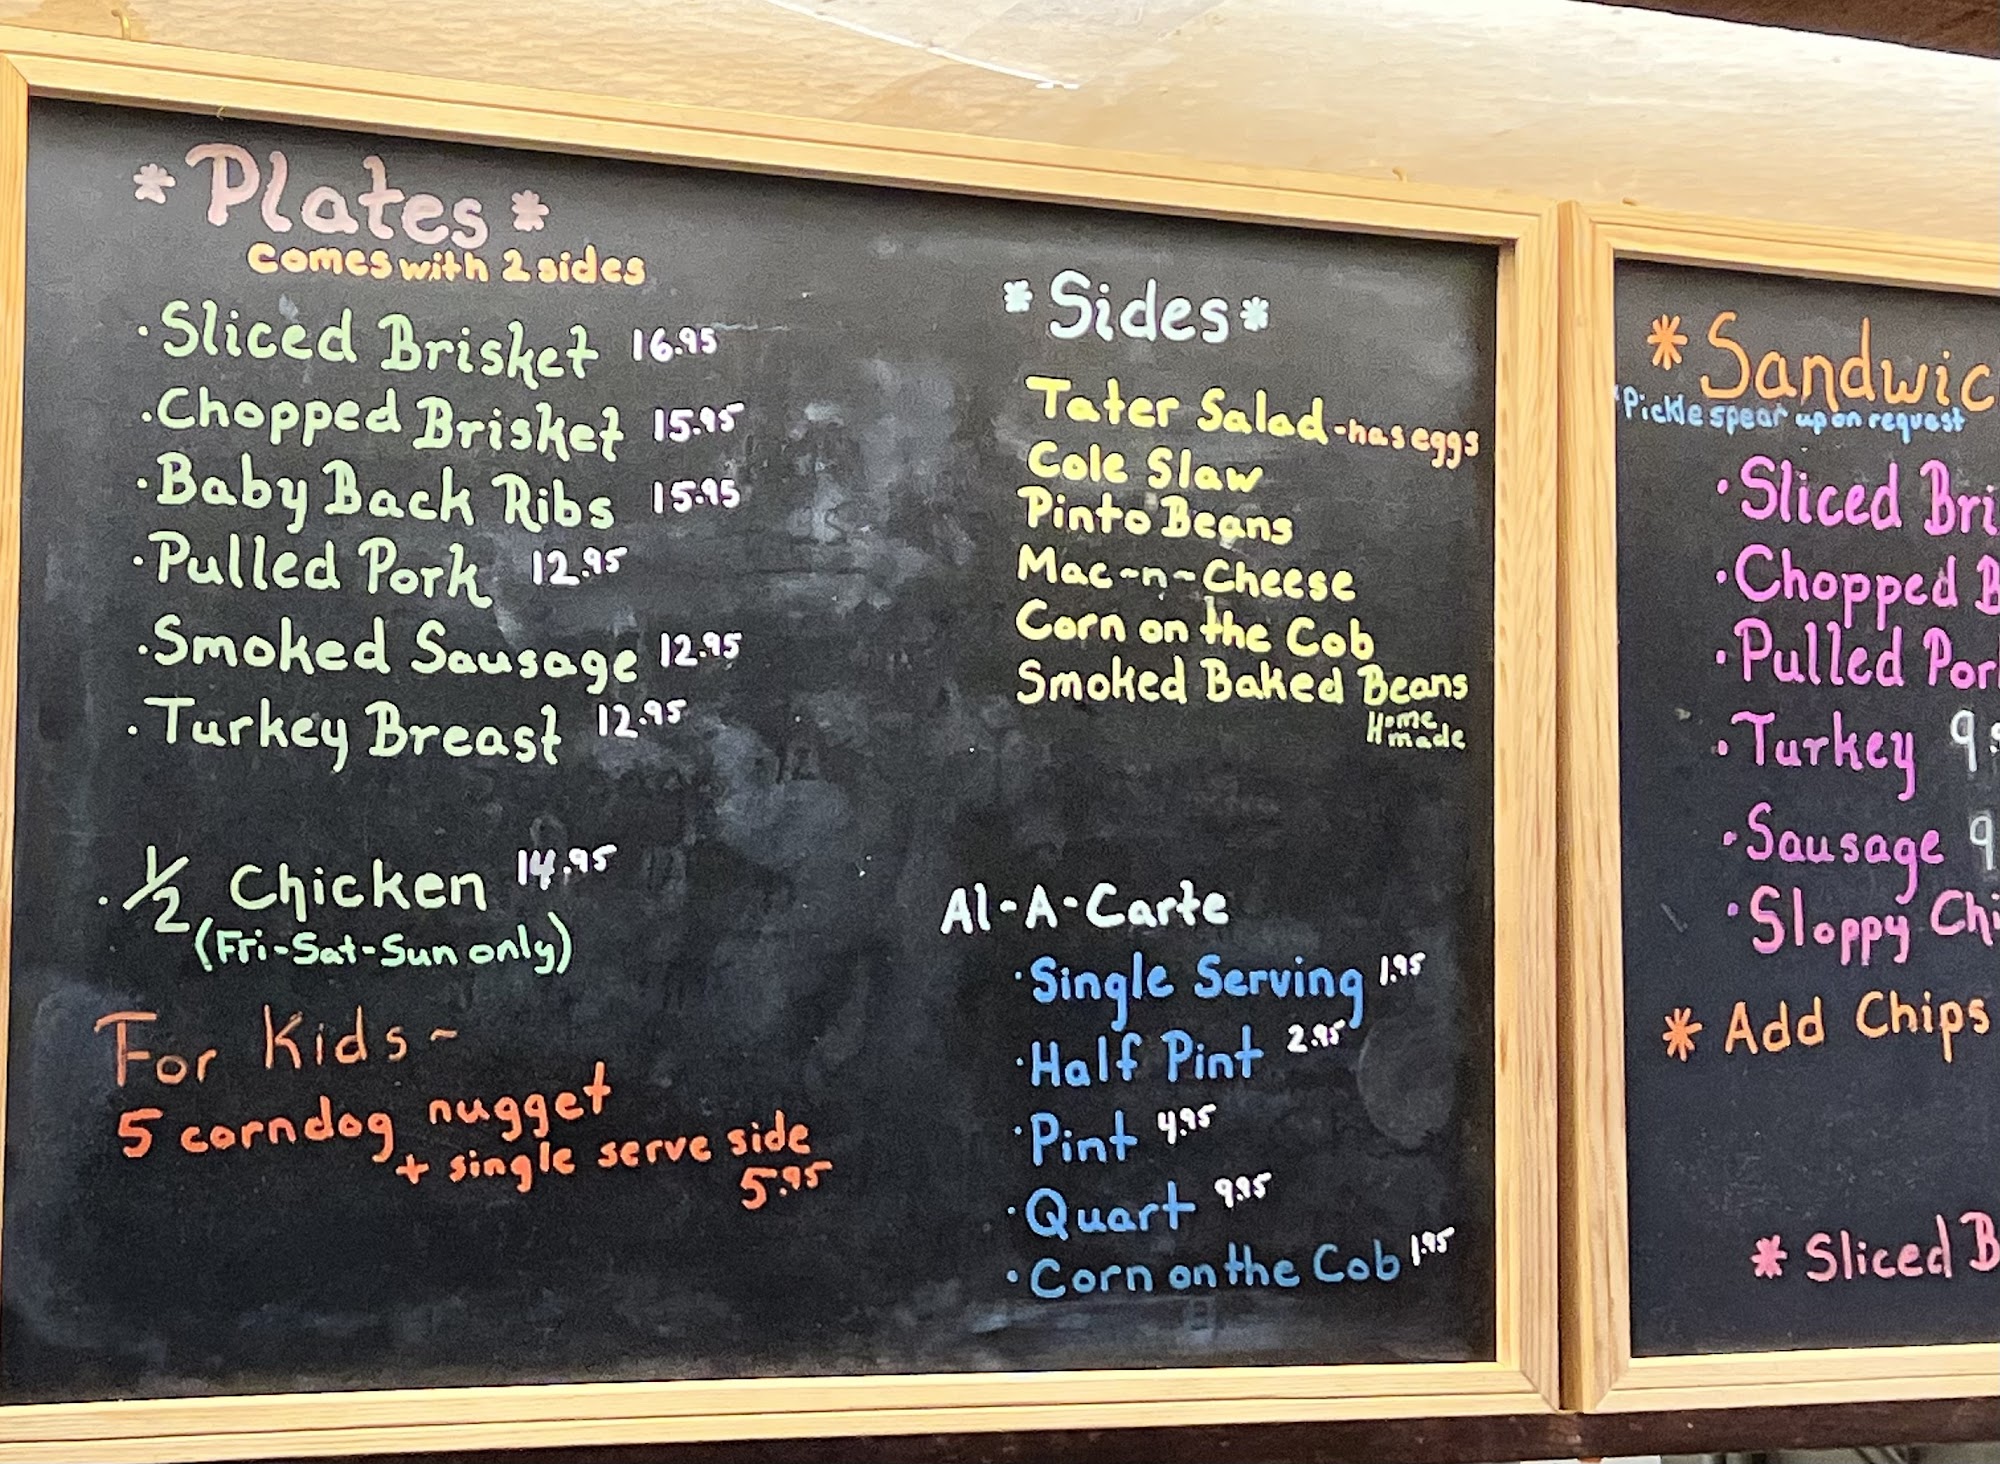 *Plates*
comes with 2 sides
·Sliced Brisket 16.95
·Chopped Brisket 15.95
·Baby Back Ribs 15.95
·Pulled Pork 12.95
·Smoked Sausage 12.95
·Turkey Breast 12.95
·1/2 Chicken 14.95
(Fri-Sat-Sun only)
For Kids~
5 corndog nugget
+ single serve side
5.95
*Sides*
Tater Salad-has eggs
Cole Slaw
Pinto Beans
Mac-n-Cheese
Corn on the Cob
Smoked Baked Beans
Home
made
Al-A-Carte
·Single Serving 1.95
·Half Pint 2.95
·Pint 4.95
·Quart 9.95
·Corn on the Cob 1.95
*Sandwic
*Pickle spear upon request
·Sliced Bri
·Chopped B
·Pulled Por
·Turkey 9.
·Sausage 9
·Sloppy Chi
* Add Chips
* Sliced B